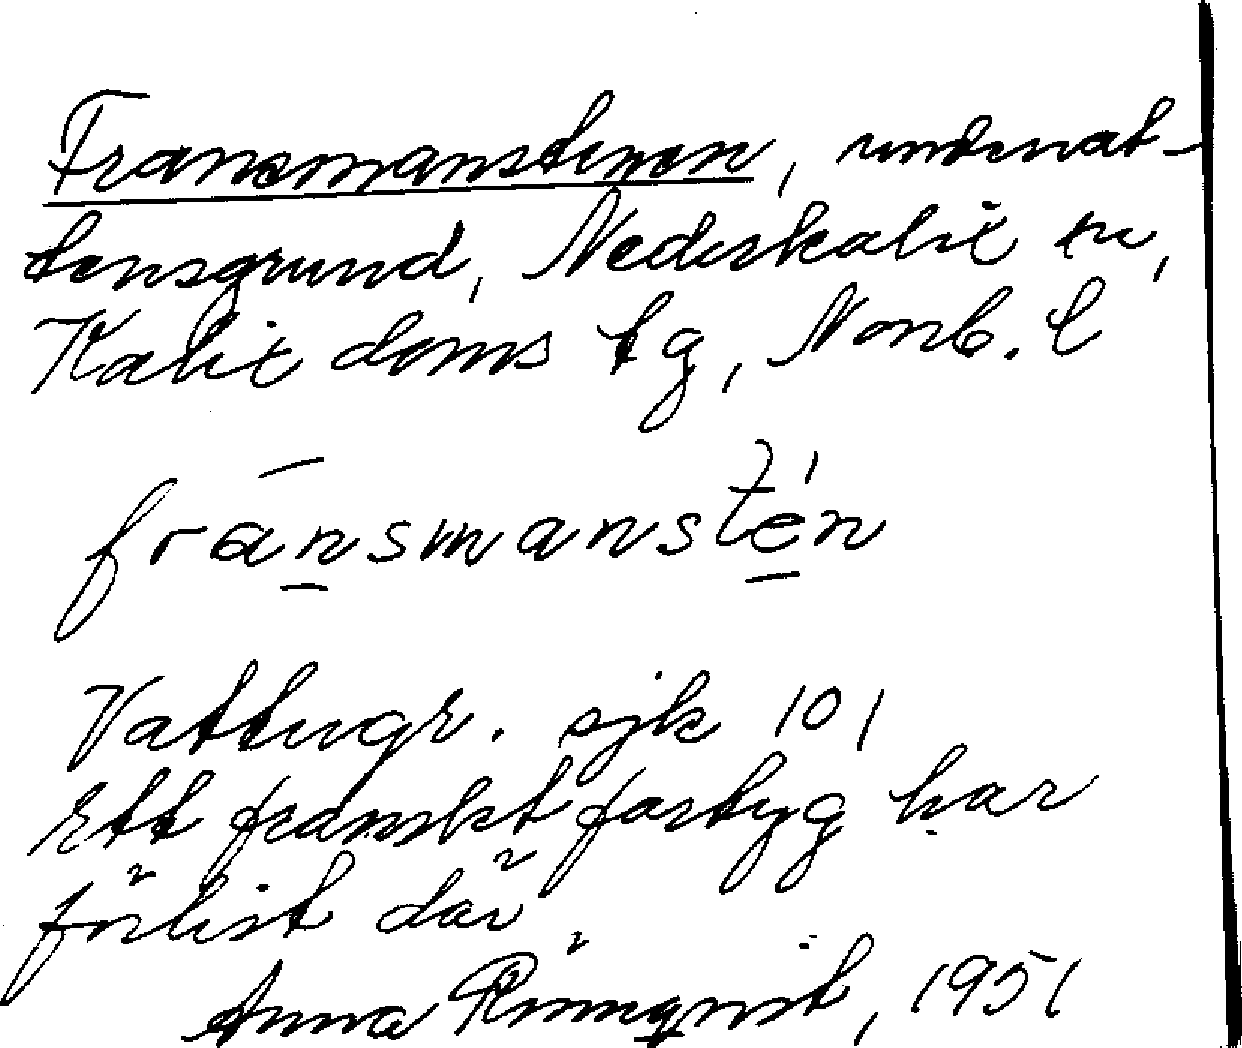 Fransmanstenen, undervat-
tensgrund, Nederkalix sn,
Kalix doms tg, Norrb. l
fra̅n̲smansté̲n
Vattugr. sjk 101
Ett franskt fartyg har
förlist där.
Anna Rönnqvist, 1951